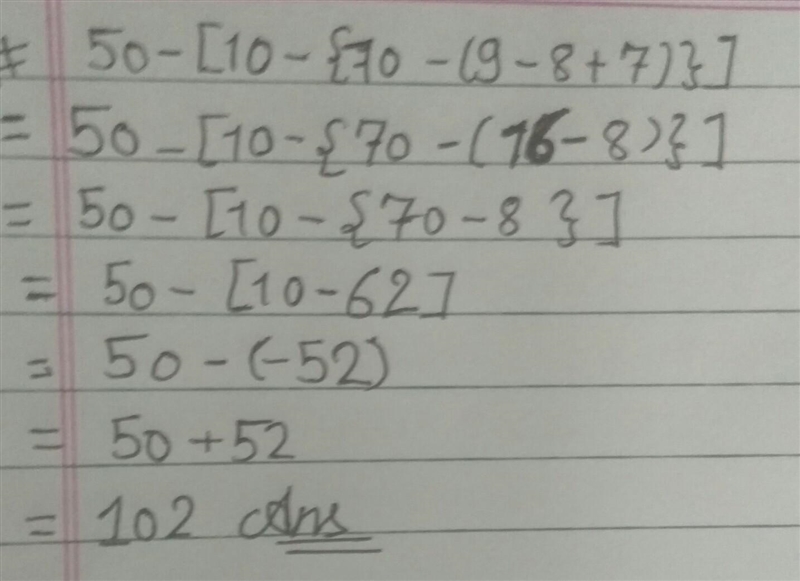 * 50-[10-{70-(9-8+7)}]
= 50-[10-{70-(16-8)}]
= 50-[10-{70-8}]
= 50-[10-62]
= 50-(-52)
= 50+52
= 102 Ans